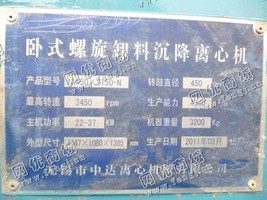 卧式螺旋卸料沉降离心机
产品型号 450 -N 转鼓直径 450
最高转速 3450 rpm 生产能力
主机功率 22-37 KW 机器重量 3200 Kg
外型尺寸 47×1080×1385 mm 出厂日期 2011年03月
无锡市中达离心机 有限公司
网优商城